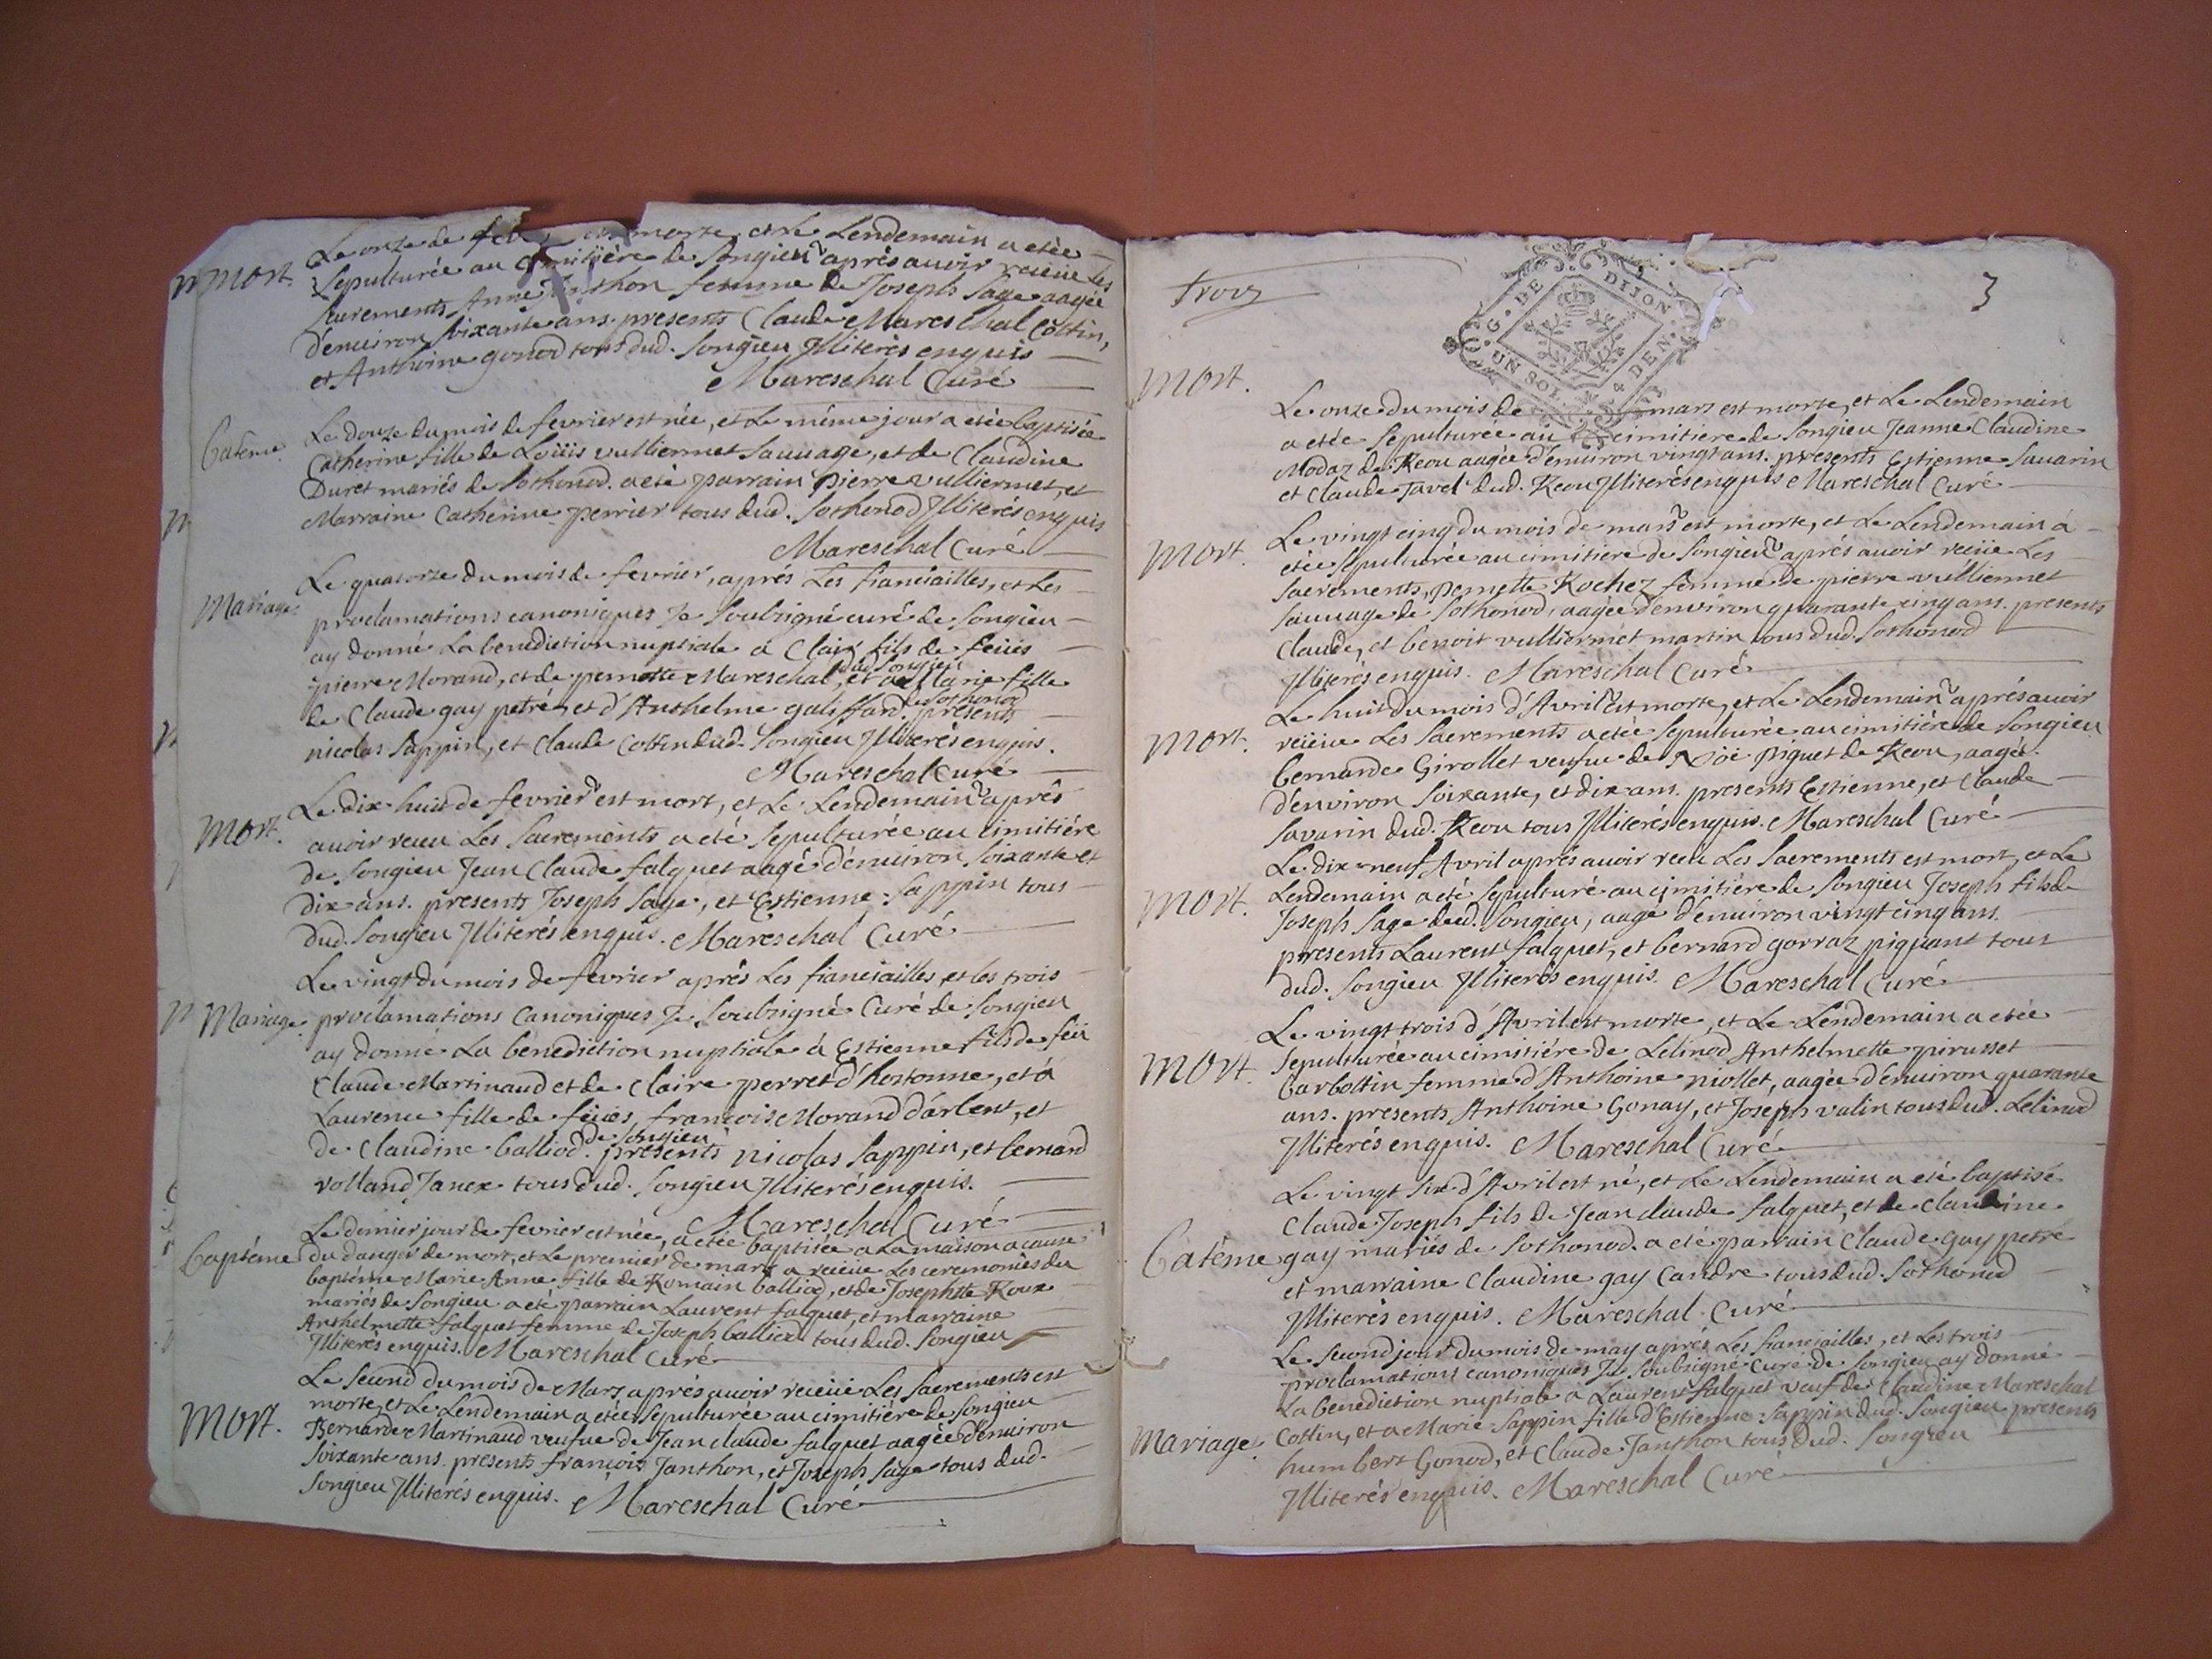 mort.
Le onze de morte, et le Lendemain a etée
Sepulturée au cimitière de Songieu aprés avoir receüe Les
Sacrements, Anne Janthon femme de Joseph Sage aagée
d'enuiron soixante ans. presents Claude Mareschal Cottin,
et Anthoine gonod tous dud. Songieu Illiterés enquis
Mareschal Curé
Batême
Le douze du mois de fevrier est née, et Le même jour a etée baptisée
Catherine fille de Loüis vulliermet Sauuage, et de Claudine
Duret mariés de Sothonod. a eté parrain pierre vulliermet, et
Marraine Catherine perrier tous dud. Sothonod Illiterés enquis
Mareschal Curé
Mariage.
Le quatorze du mois de fevrier, aprés Les fiancailles, et Les
proclamations canoniques Je Soubsigné curé de Songieu
ay donné La benediction nuptiale à Clair fils de feües
pierre Morand, et de pernette Mareschal, dud. Songieu et a Marie fille
de Claude gay petré et d'Anthelme galiffard. de Sothonod presents
nicolas Sappin, et Claude Cottin dud. Songieu Illiterés enquis.
Mareschal Curé
Mort.
Le dix-huit de fevrier est mort, et Le Lendemain aprés
avoir receu Les Sacrements a eté Sepulturée au cimitiére
de Songieu Jean Claude falquet aagé d'enuiron Soixante et
dix ans. presents Joseph Sage, et Estienne Sappin tous
dud. Songieu Illiterés enquis. Mareschal Curé
Mariage.
Le vingt du mois de fevrier aprés Les fiancailles et les trois
proclamations Canoniques Je Soubsigné Curé de Songieu
ay donné La benediction nuptiale à Estienne fils de feu
Claude Martinaud et de Claire perret d'hostonne, et à
Laurence fille de feües françois Morand d'arlent, et
de Claudine balliod. de Songieu presents nicolas Sappin, et bernard
volland Janex tous dud. Songieu Illiterés enquis.
Mareschal Curé
Baptéme
Le dernier jour de fevrier est née, a etée baptisée a La maison a cause
du danger de mort, et Le premier de mars a receüe Les ceremonies du
baptéme Marie Anne fille de Romain balliod, et de Josephtte Roux
mariés de Songieu a eté parrain Laurent falquet, et marraine
Anthelmette falquet femme de Joseph balliod tous dud. Songieu
Illiterés enquis. Mareschal Curé
Mort.
Le second du mois de Mars aprés avoir receüe Les Sacrements est
morte, et Le Lendemain a etée Sepulturée au cimitiére de Songieu
Bernarde Martinaud veufue de Jean claude falquet aagée d'enuiron
Soixante ans. presents francois Janthon, et Joseph Sage tous dud.
Songieu Illiterés enquis. Mareschal Curé
trois
3
G. DE DIJON
UN SOL. 4 DEN.
Mort.
Le onze du mois de mars est morte, et Le Lendemain
a etée Sepulturée au cimitiere de Songieu Jeanne Claudine
Modaz de Keou aagée d'enuiron vingt ans. presents Estienne Sauarin
et Claude Tavel dud. Keou Illiterés enquis Mareschal Curé
Mort.
Le vingt cinq du mois de mars est morte, et Le Lendemain a
etée Sepulturée au cimitiere de Songieu aprés avoir receüe Les
Sacrements, pernette Rochez femme de pierre vulliermet
Sauuage de Sothonod, aagée d'environ quarante cinq ans. presents
Claude, et benoit vulliermet martin tous dud. Sothonod
Illiterés enquis. Mareschal Curé
Mort.
Le huit du mois d'Avril est morte, et Le Lendemain aprés avoir
receüe Les Sacrements a etée Sepulturée au cimitiére de Songieu
bernarde Girollet veufue de Noë piquet de Keou, aagée
d'environ Soixante, et dix ans. presents Estienne, et Claude
Savarin dud. Keou tous Illiterés enquis. Mareschal Curé
Mort.
Le dix-neuf Avril aprés avoir receu Les Sacrements est mort, et Le
Lendemain a eté Sepulturé au cimitiére de Songieu Joseph fils de
Joseph Sage dud. Songieu, aagé d'enuiron vingt cinq ans.
presents Laurent falquet, et bernard gorraz piquant tous
dud. Songieu Illiterés enquis. Mareschal Curé
Mort.
Le vingt trois d'Avril est morte, et Le Lendemain a etée
Sepulturée au cimitiére de Lelinod Anthelmette pirusset
barbottin femme d'Anthoine niollet, aagée d'enuiron quarante
ans. presents Anthoine Gonay, et Joseph valin tous dud. Lelinod
Illiterés enquis. Mareschal Curé
Batême
Le vingt six d'Avril est né, et Le Lendemain a eté baptisé
Claude Joseph fils de Jean claude falquet, et de claudine
gay mariés de Sothonod. a eté parrain Claude gay petré
et marraine Claudine gay Candre tous dud. Sothonod
Illiterés enquis. Mareschal Curé
Mariage.
Le second jour du mois de may aprés Les fiancailles, et Les trois
proclamations canoniques Je Soubsigné Curé de Songieu ay donné
La benediction nuptiale à Laurent falquet veuf de Claudine Mareschal
Cottin, et a Marie Sappin fille d'Estienne Sappin dud. Songieu presents
humbert Gonod, et Claude Janthon tous dud. Songieu
Illiterés enquis. Mareschal Curé